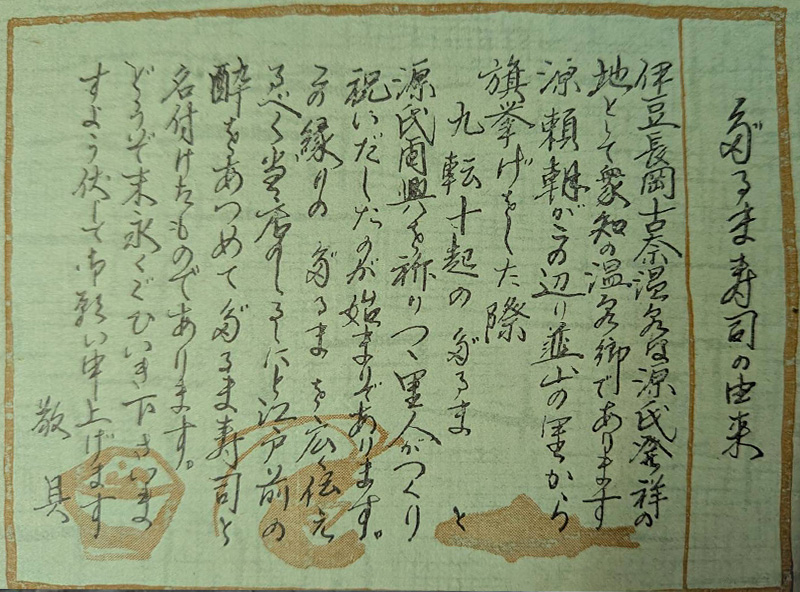 だるま寿司の由来
伊豆長岡古奈温泉は源氏発祥の
地として衆知の温泉郷であります
源頼朝がこの辺り韮山の里から
旗挙げをした際
九転十起のだるま と
源氏再興を祈りつゝ里人がつくり
祝いだしたのが始まりであります。
この縁りの だるま を広く伝え
るべく当店のしるしにと江戸前の
酔をあつめて だるま寿司と
名付けたものであります。
どうぞ末永くごひいき下さいま
すよう伏して御願い申上げます
敬具